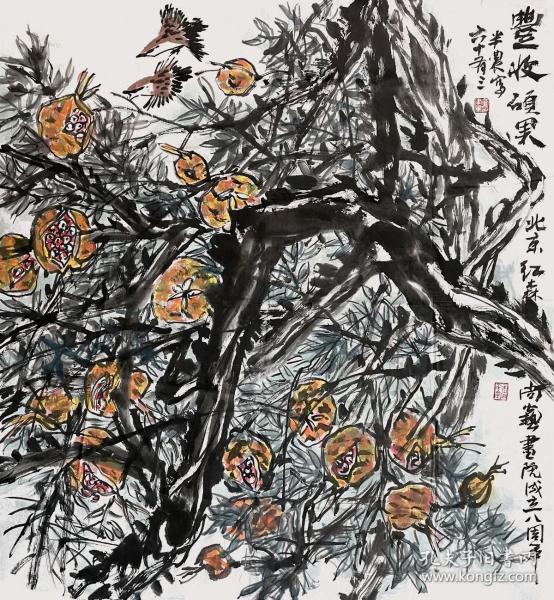 豐收碩果
半農寫
六十有三
北京紅森
尚藝書院成立八周年
孔夫子旧书网
www.kongfz.com